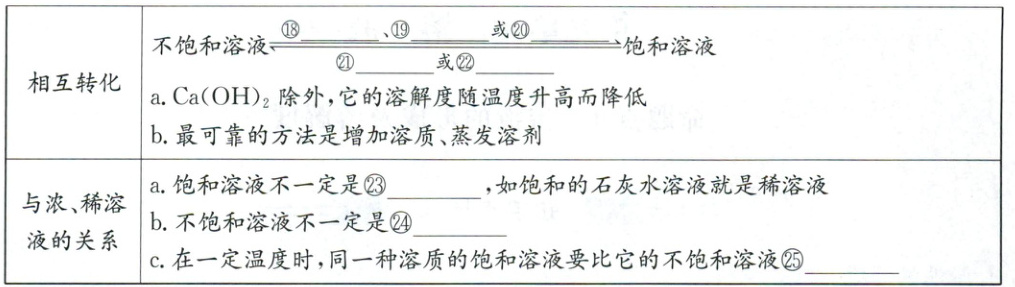 相互转化
不饱和溶液 ⑱______、⑲______或⑳______ 饱和溶液
㉑______或㉒______
a. Ca(OH)₂ 除外,它的溶解度随温度升高而降低
b. 最可靠的方法是增加溶质、蒸发溶剂
与浓、稀溶
液的关系
a. 饱和溶液不一定是㉓______,如饱和的石灰水溶液就是稀溶液
b. 不饱和溶液不一定是㉔______
c. 在一定温度时,同一种溶质的饱和溶液要比它的不饱和溶液㉕______